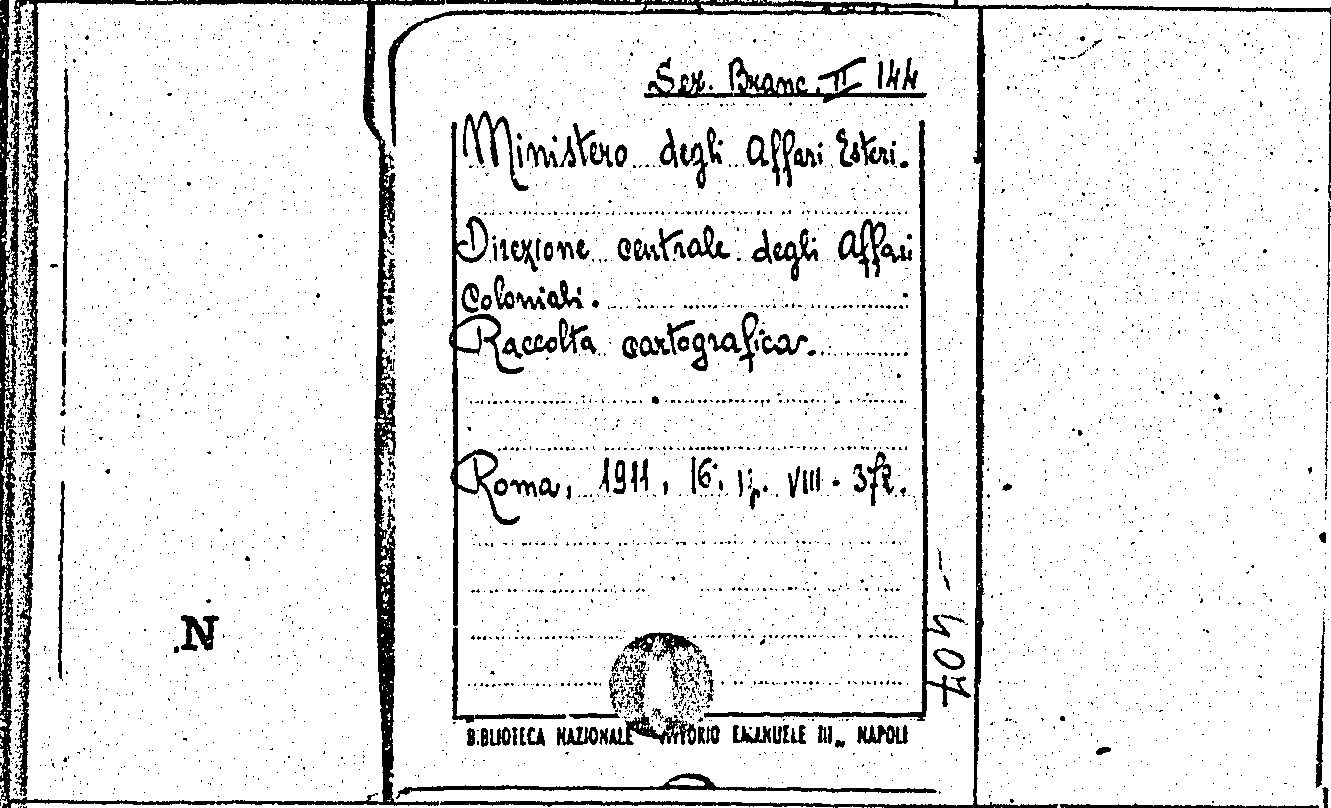 Sez. Branc. II 144
Ministero degli Affari Esteri.
Direzione centrale degli Affari
Coloniali.
Raccolta cartografica.
Roma, 1911, 16; pp. VIII - 37
BIBLIOTECA NAZIONALE VITTORIO EMANUELE III„ NAPOLI
N.